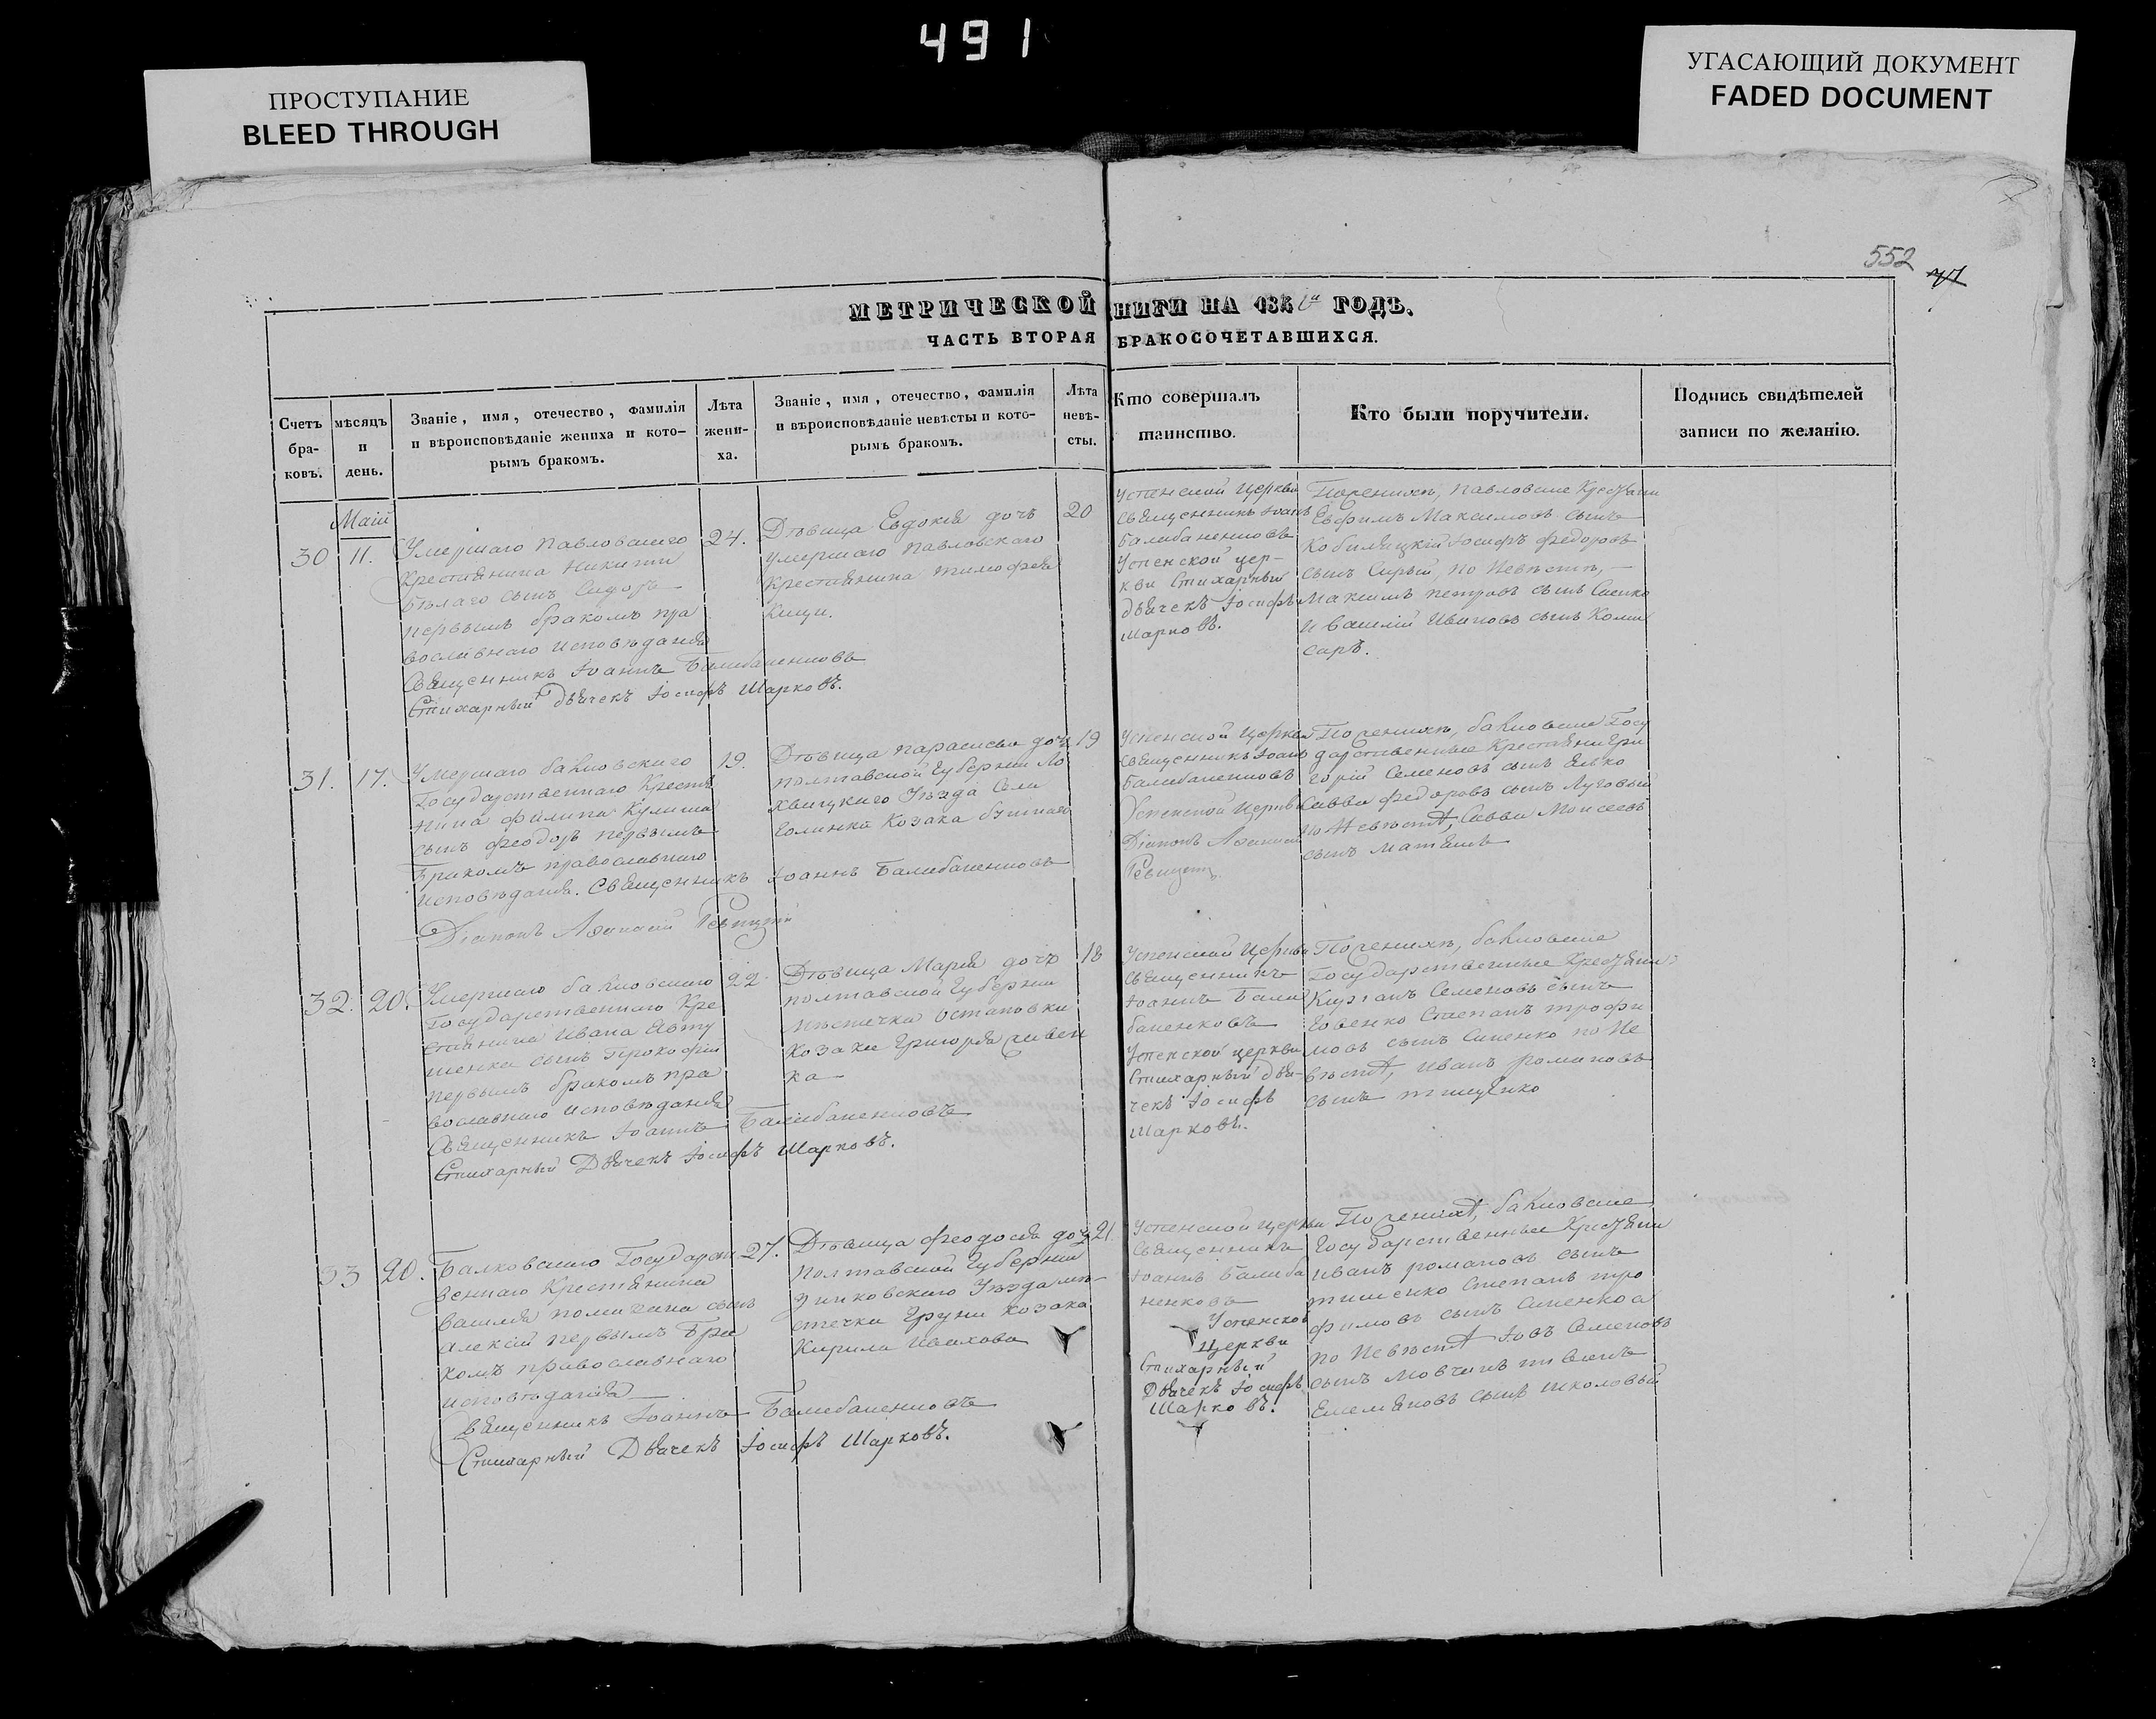 491
ПРОСТУПАНИЕ
BLEED THROUGH
УГАСАЮЩИЙ ДОКУМЕНТ
FADED DOCUMENT
552
МЕТРИЧЕСКОЙ НИГИ НА 184 ГОДЪ.
ЧАСТЬ ВТОРАЯ БРАКОСОЧЕТАВШИХСЯ.
Счетъ бра-ковъ.
мѣсяцъ и день.
Званіе, имя, отечество, фамилія
и вѣроисповѣданіе жениха и кото-
рымъ бракомъ.
Лѣта жени-ха.
Званіе, имя, отечество, фамилія
и вѣроисповѣданіе невѣсты и кото-
рымъ бракомъ.
Лѣта невѣ-сты.
Кто совершалъ
таинство.
Кто были поручители.
Подпись свидѣтелей
записи по желанію.
Маій
30
11.
Умершаго Павловскаго
Крестьянина Никиты
Бѣлаго сынъ Сидоръ
первымъ бракомъ пра
вославнаго исповѣданія
Священникъ Іоаннъ Балабаненковъ
Стихарный Дьячекъ Іосифъ Шарковъ.
24.
Дѣвица Евдокія дочь
умершаго Павловскаго
Крестьянина Тимофея
Кищи.
20
Успенской Церкви
Священникъ Іоаннъ
Балабаненковъ
Успенской цер-
кви Стихарный
дьячекъ Іосифъ
Шарковъ.
По женихѣ, Павловские Крестьяни
Ефимъ Максимовъ сынъ
Кобиляцкій Іосифъ Федоровъ
сынъ Сирый, по Невѣсте,
Максимъ Петровъ сынъ
И Василій Ивановъ сынъ Коми
саръ.
31.
17.
Умершаго балковскаго
Государственнаго Крестья
нина Филипа Кулиша
сынъ Феодоръ первымъ
Бракомъ православнаго
исповѣданія. Священникъ Іоаннъ Балабаненковъ
Діаконъ Афанасій Ревицкій
19.
Дѣвица Параскева дочь
Полтавской Губерніи Ло
хвицкаго Уѣзда Села
Козака
19
Успенской Церкви
Священникъ Іоаннъ
Балабаненковъ
Успенской Церкви
Діаконъ Афанасій
По женихѣ, балковские Госу
дарственные Крестьяни Гри
горій Семеновъ сынъ
Савва Федоровъ сынъ Луговый
по Невѣстѣ, Савва Моисеевъ
сынъ
32.
20.
Умершаго балковскаго
Государственнаго Кре
стьянина Ивана Явту
шенка сынъ Прокофій
первымъ бракомъ пра
вославнаго исповѣданія
Священникъ Іоаннъ Балабаненковъ
Стихарный Дьячекъ Іосифъ Шарковъ.
22.
Дѣвица Марія дочь
Полтавской Губерніи
Мѣстечка Остаповки
козака Григорія
ка
18
Успенской Церкви
Священникъ
Іоаннъ Бала
баненковъ
Успенской церкви
Стихарный дья-
чекъ Іосифъ
Шарковъ.
По женихѣ, балковские
Государственные Крестьяни
Семеновъ сынъ
Степанъ Трофи
мовъ сынъ Синенко по Не
вѣстѣ, Иванъ Романовъ
сынъ Тищенко
33
20.
Балковскаго Государст
веннаго Крестьянина
Василія сынъ
Алексій первымъ Бра
комъ православнаго
исповѣданія
Священникъ Іоаннъ Балабаненковъ
Стихарный Дьячекъ Іосифъ Шарковъ.
27.
Дѣвица Феодосія дочь
Полтавской Губерніи
Зинковскаго Уѣзда мѣ-
стечка Груни козака
Кирила
21.
Успенской церкви
Священникъ
Іоаннъ Балаба
ненковъ
Успенской
Церкви
Стихарный
Дьячекъ Іосифъ
Шарковъ.
По женихѣ, балковские
Государственные Крестьяни
Иванъ Романовъ сынъ
Степанъ Тро
фимовъ сынъ Синенко а
по Невѣстѣ Іовъ Семеновъ
сынъ
Емельяновъ сынъ